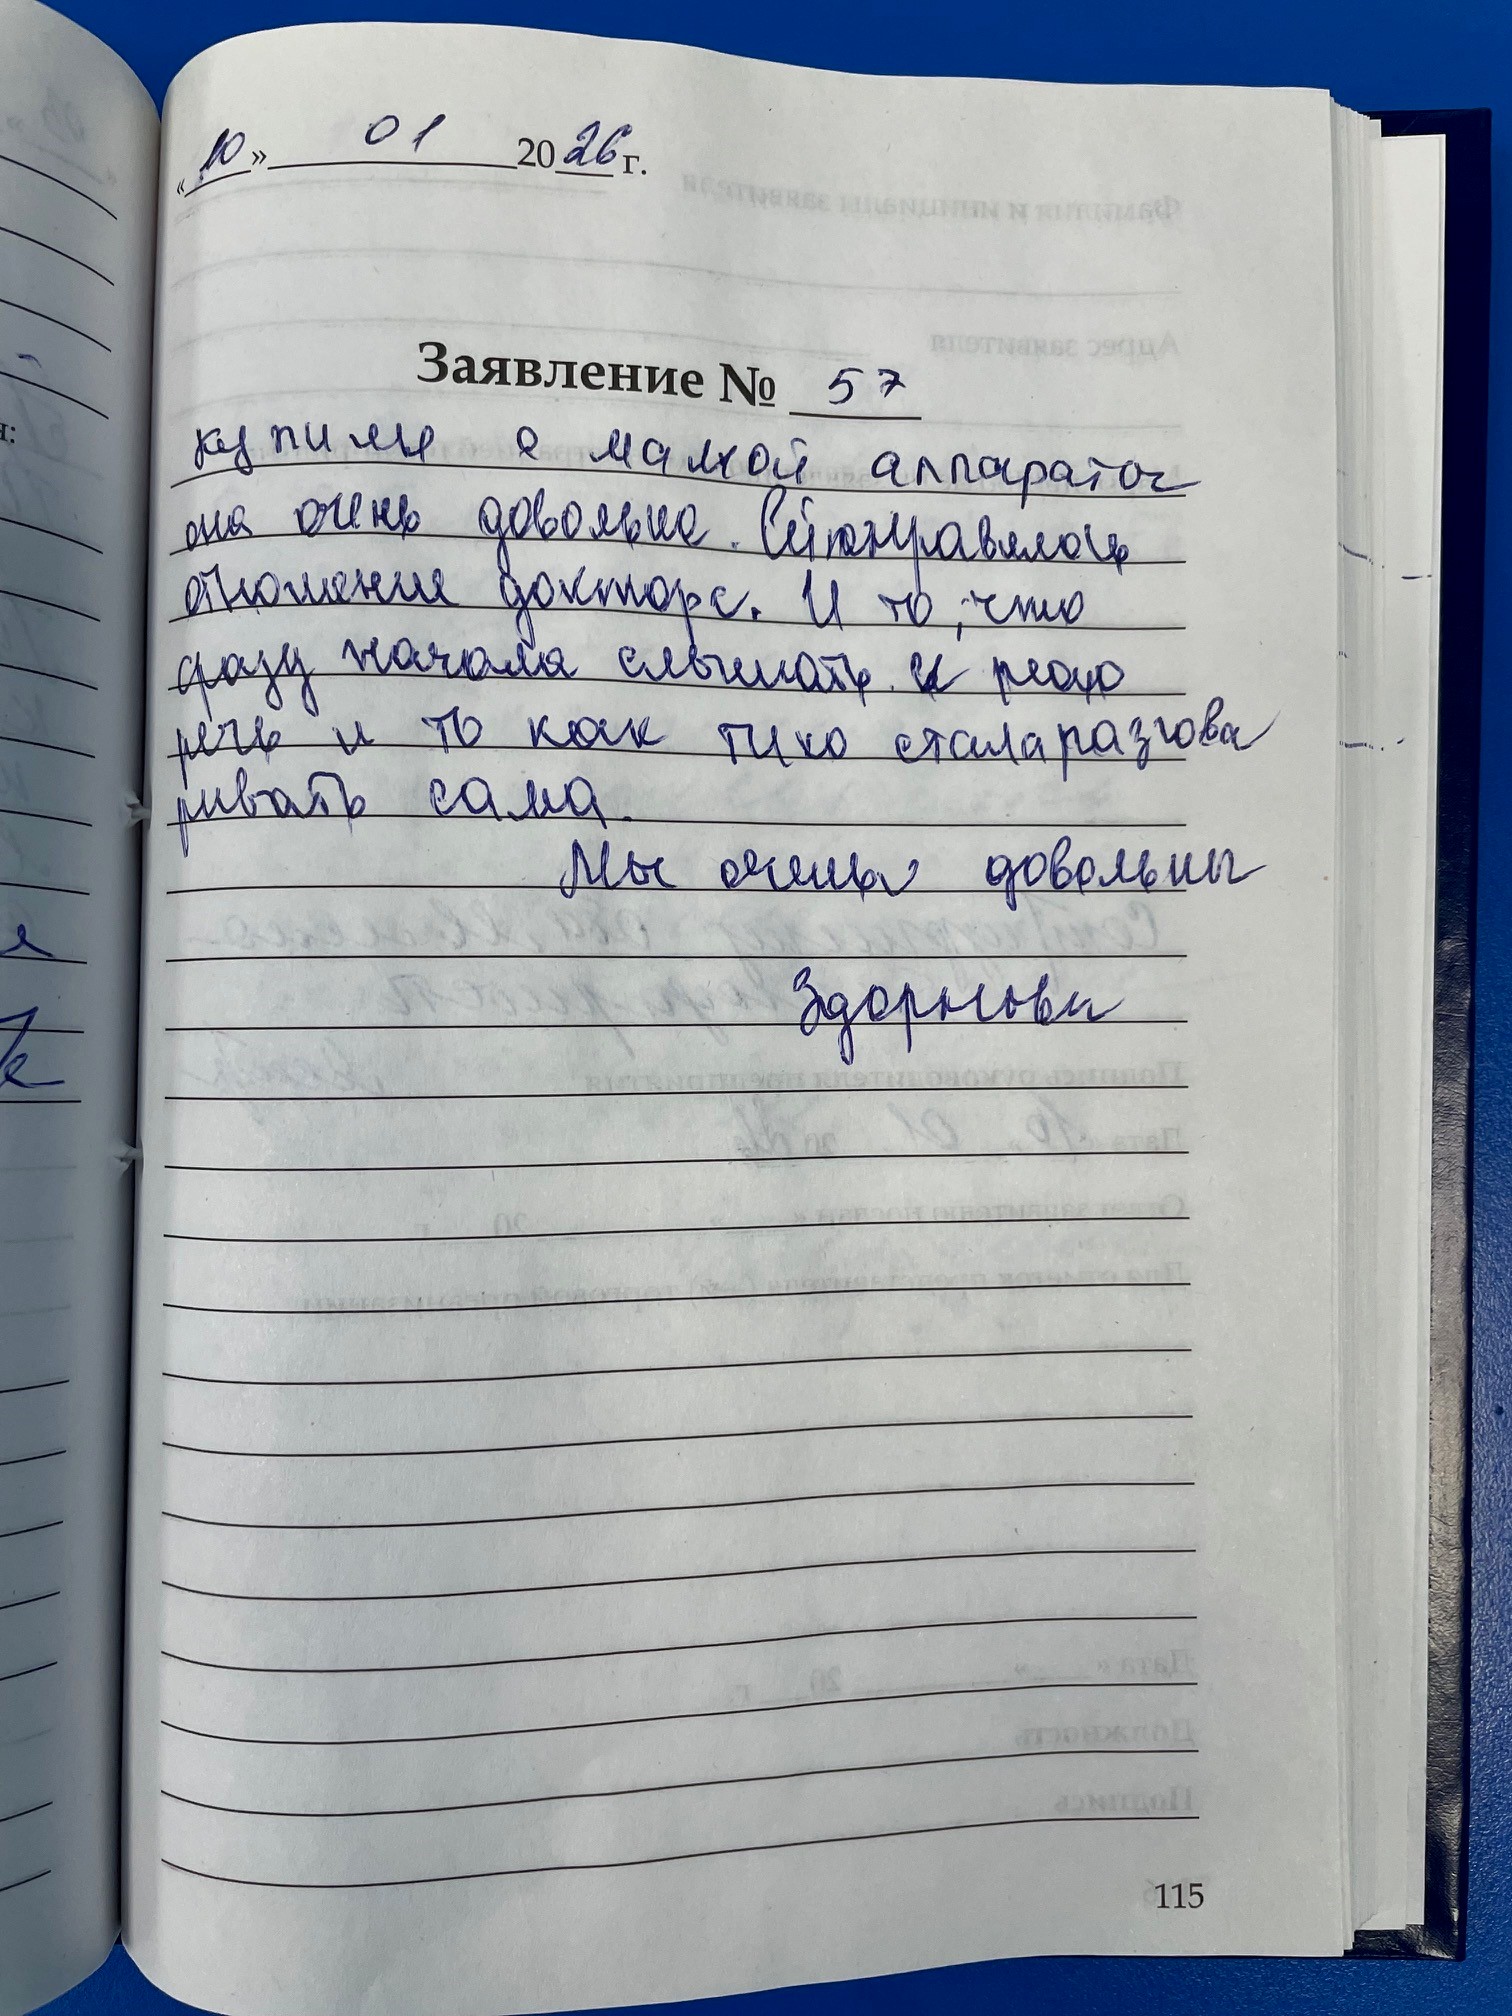 «10» 01 2026 г.
Заявление № 57
купили с мамой аппараточ
она очень довольна. Ей понравялось
отношение доктора. И то, что
сразу начала слышать и
речь и то как тихо стала разгова
ривать сама.
Мы очень довольны
115